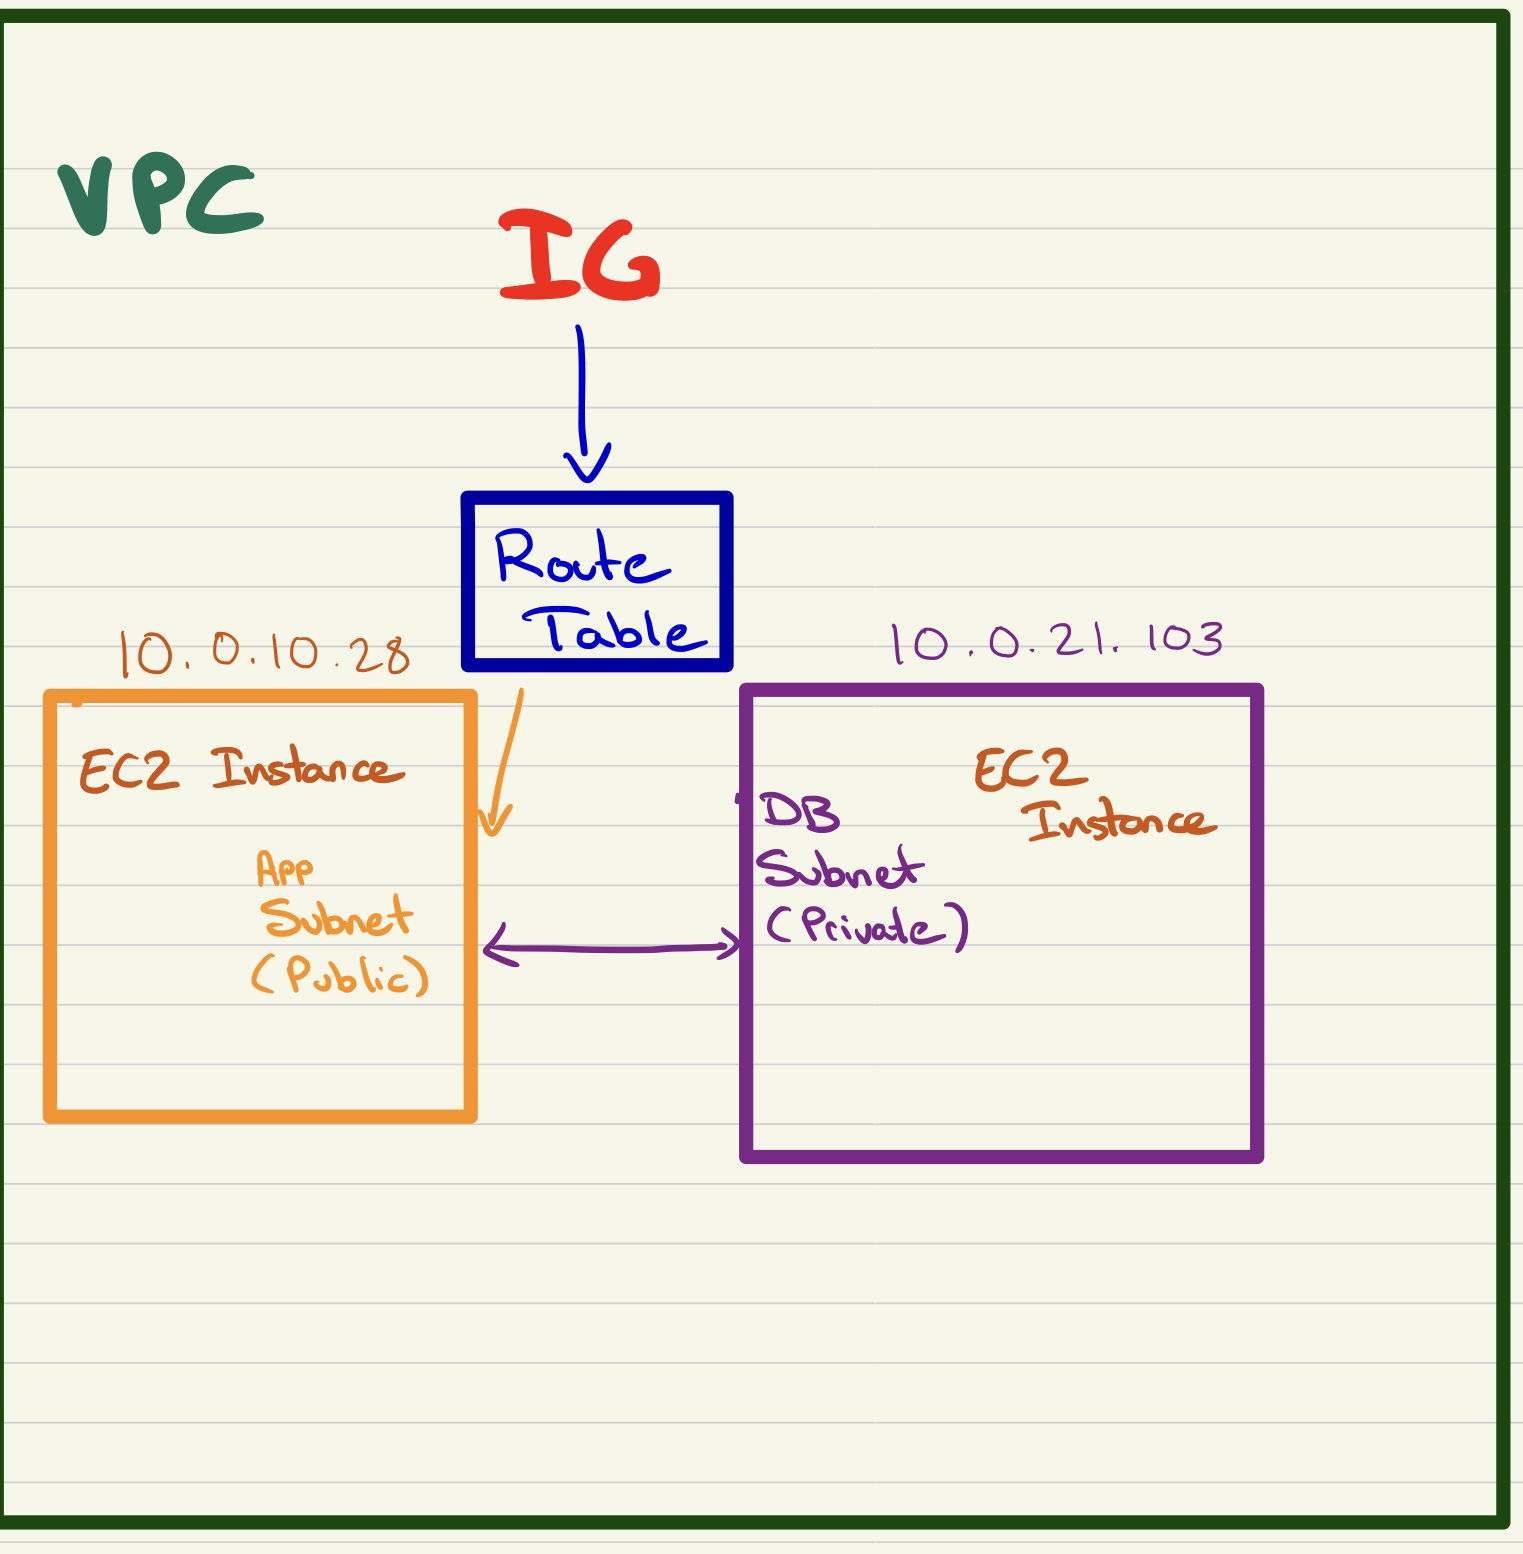 VPC
IG
Route
Table
10.0.10.28
EC2 Instance
App
Subnet
(Public)
10.0.21.103
EC2
Instance
DB
Subnet
(Private)